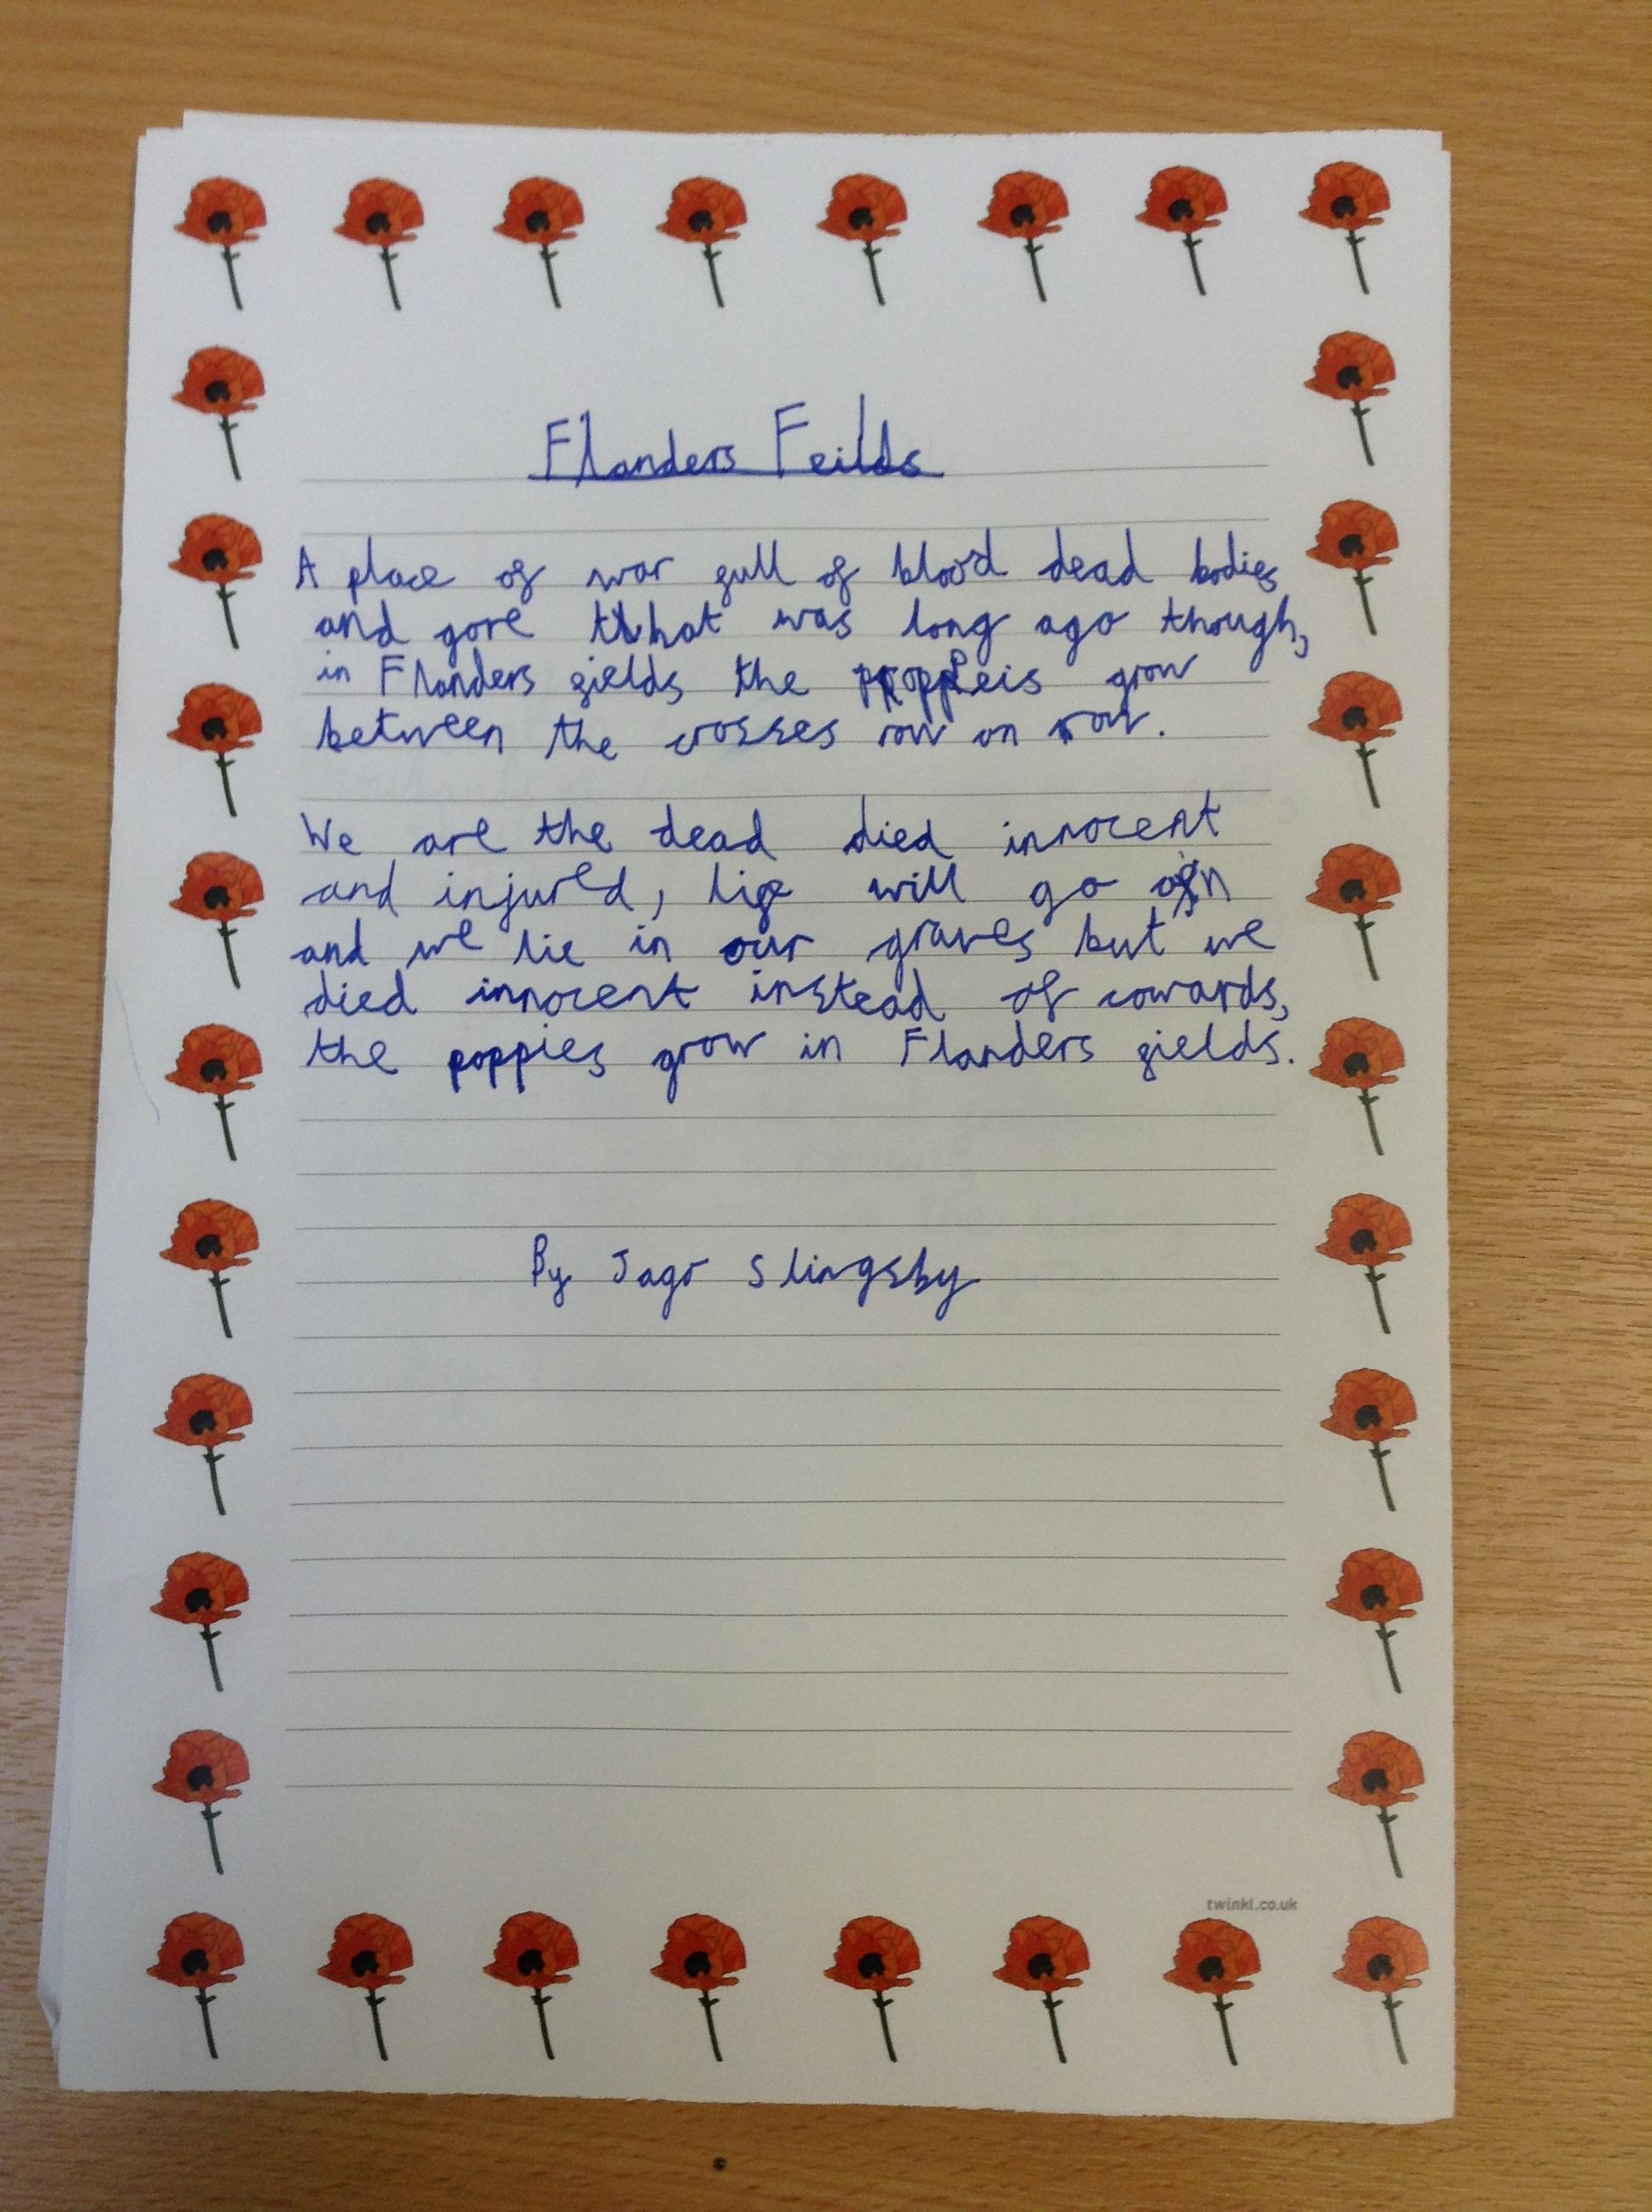 Flanders Feilds
A place of war full of blood dead bodies
and gore that was long ago though,
in Flanders fields the poppeis grow
between the crosses row on row.
We are the dead died innocent
and injured, life will go on
and we lie in our graves but we
died innocent instead of cowards,
the poppies grow in Flanders fields.
By Jago Slingsby
twinkl.co.uk